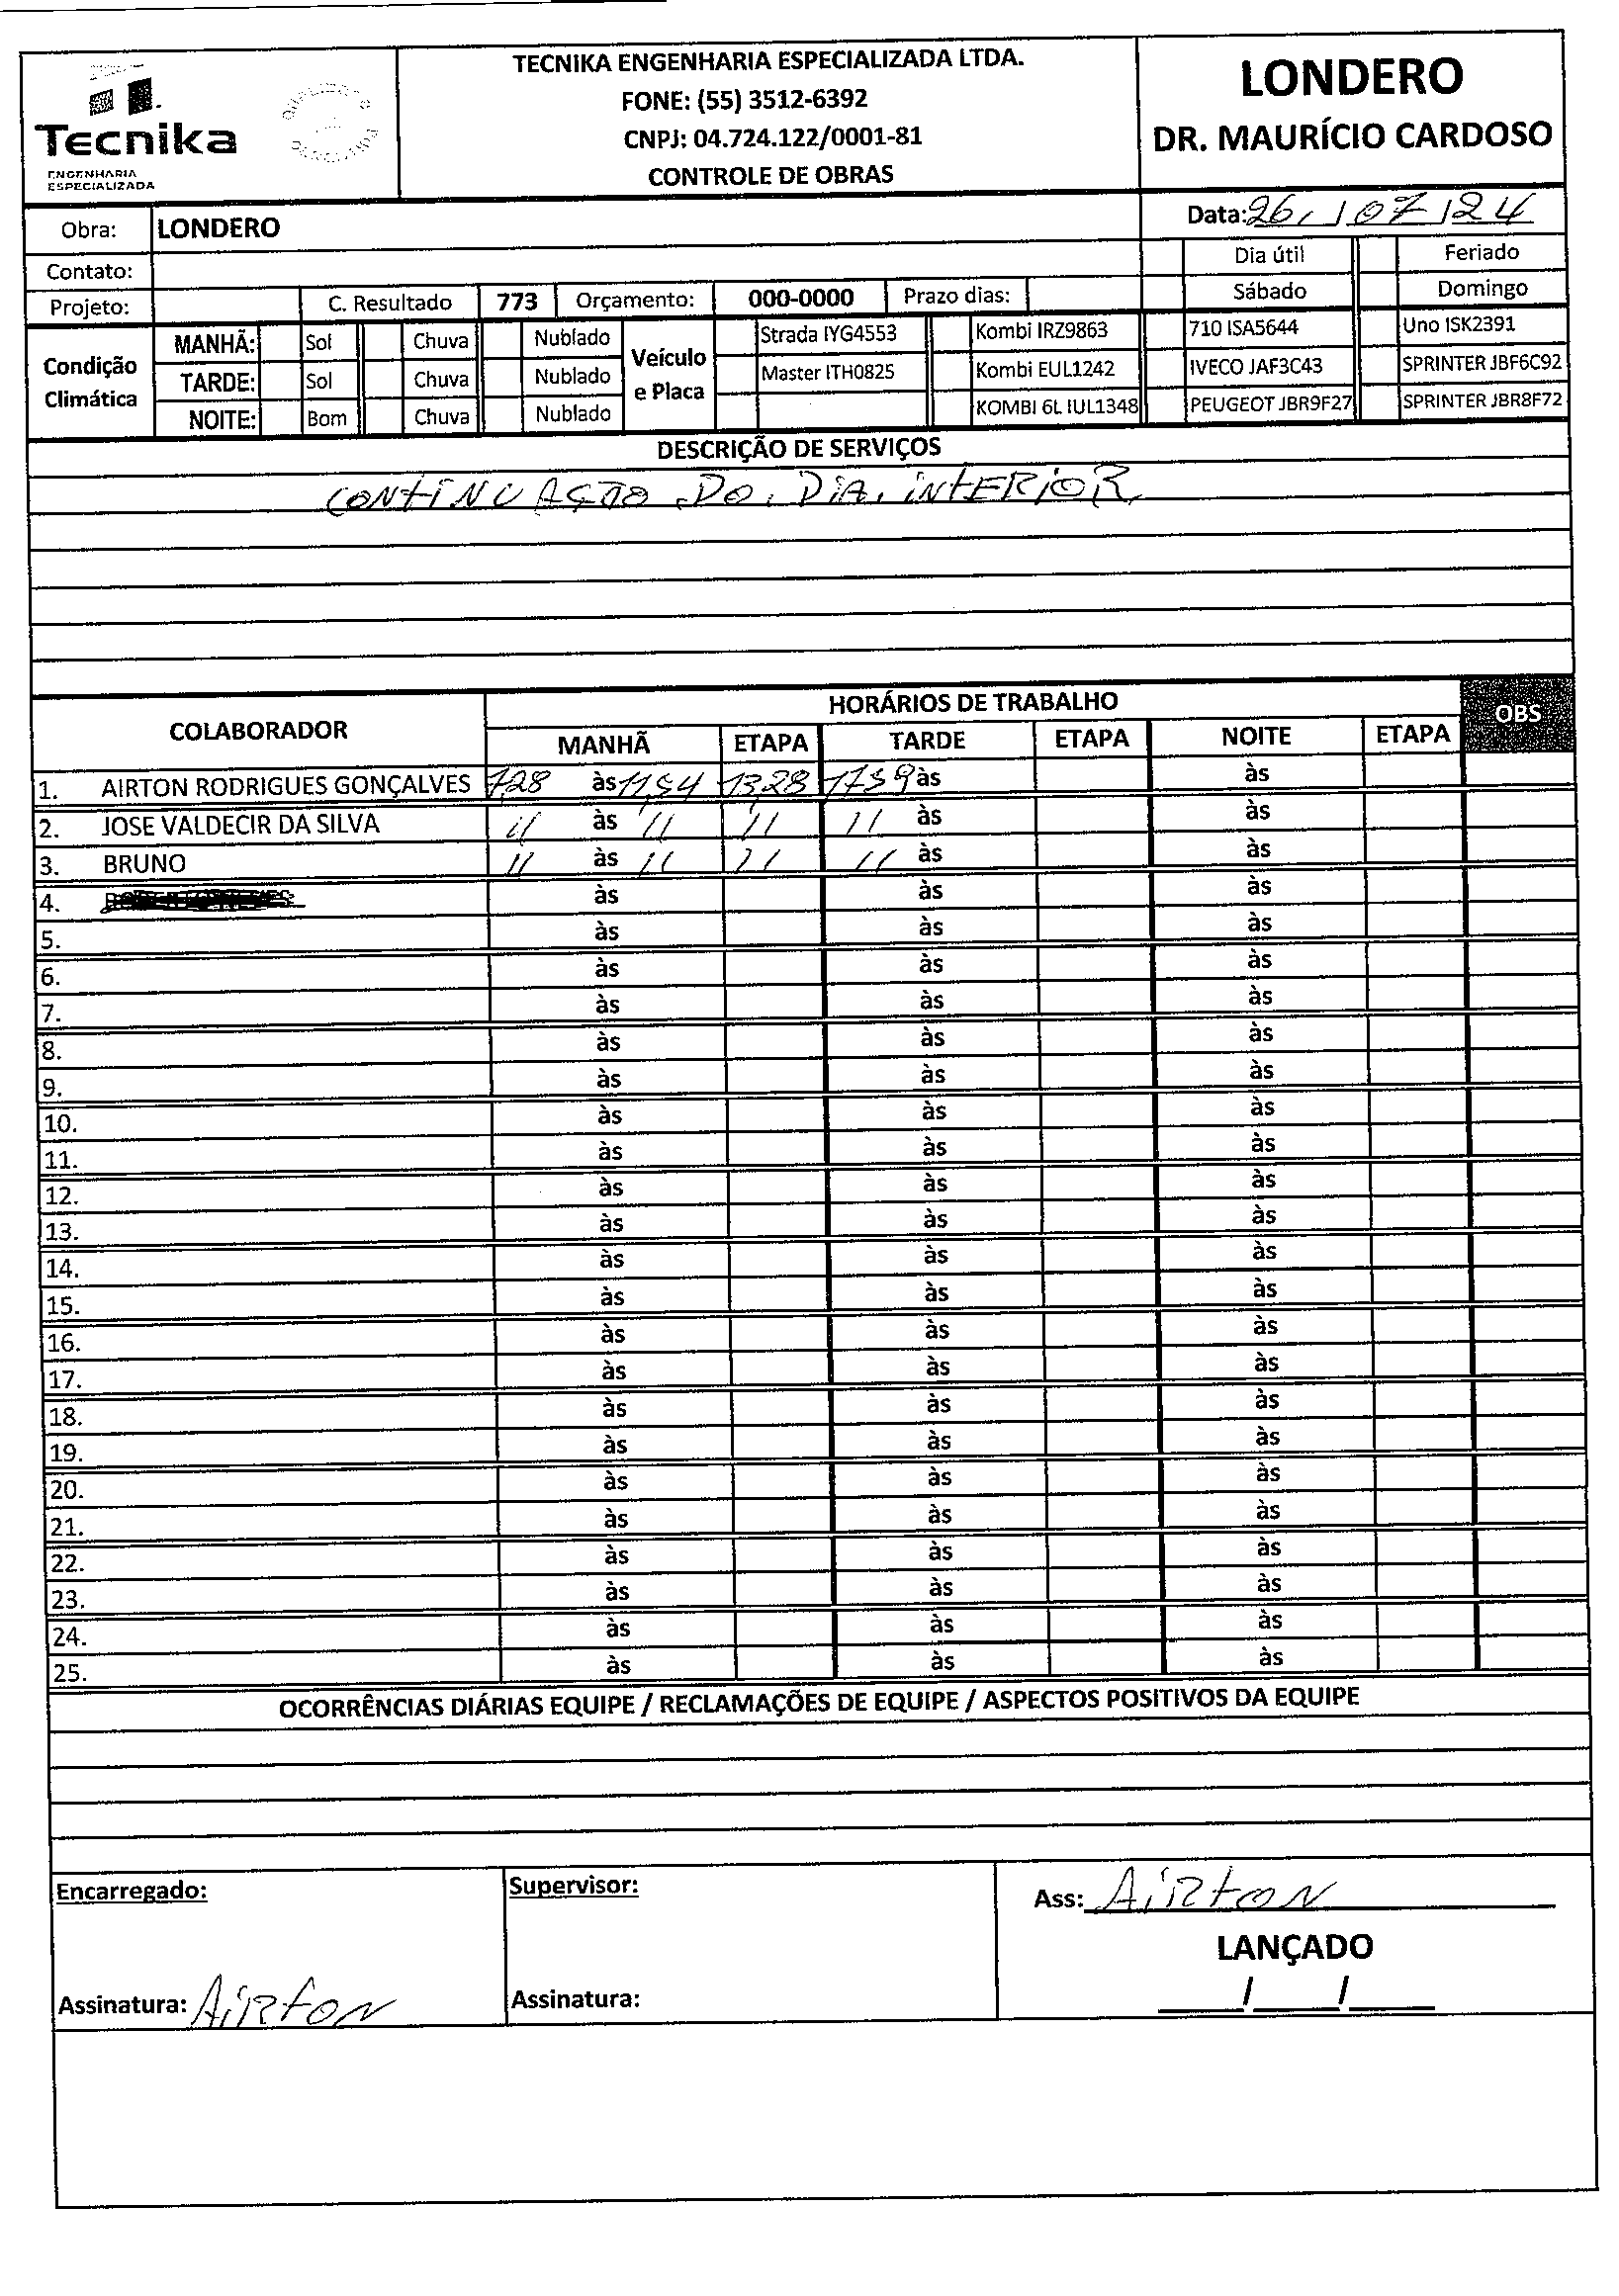 TECNIKA ENGENHARIA ESPECIALIZADA LTDA.
FONE: (55) 3512-6392
CNPJ: 04.724.122/0001-81
CONTROLE DE OBRAS
Tecnika
ENGENHARIA
ESPECIALIZADA
LONDERO
DR. MAURÍCIO CARDOSO
Obra: LONDERO
Data: 26, / 07 / 24
Contato:
Dia útil Feriado
Projeto: C. Resultado 773 Orçamento: 000-0000 Prazo dias: Sábado Domingo
Condição Climática
MANHÃ: Sol Chuva Nublado
TARDE: Sol Chuva Nublado
NOITE: Bom Chuva Nublado
Veículo e Placa
Strada IYG4553 Kombi IRZ9863 710 ISA5644 Uno ISK2391
Master ITH0825 Kombi EUL1242 IVECO JAF3C43 SPRINTER JBF6C92
KOMBI 6L IUL1348 PEUGEOT JBR9F27 SPRINTER JBR8F72
DESCRIÇÃO DE SERVIÇOS
CONTINUAÇTO DO. DIA. INTERIOR
COLABORADOR HORÁRIOS DE TRABALHO OBS
MANHÃ ETAPA TARDE ETAPA NOITE ETAPA
1. AIRTON RODRIGUES GONÇALVES 7,28 às 11,54 13,28 1759 às às
2. JOSE VALDECIR DA SILVA 11 às 11 11 11 às às
3. BRUNO 11 às 11 11 11 às às
4. às às às
5. às às às
6. às às às
7. às às às
8. às às às
9. às às às
10. às às às
11. às às às
12. às às às
13. às às às
14. às às às
15. às às às
16. às às às
17. às às às
18. às às às
19. às às às
20. às às às
21. às às às
22. às às às
23. às às às
24. às às às
25. às às às
OCORRÊNCIAS DIÁRIAS EQUIPE / RECLAMAÇÕES DE EQUIPE / ASPECTOS POSITIVOS DA EQUIPE
Encarregado: Supervisor: Ass: AIRTON
LANÇADO
Assinatura: AIRTON Assinatura: ____/____/____